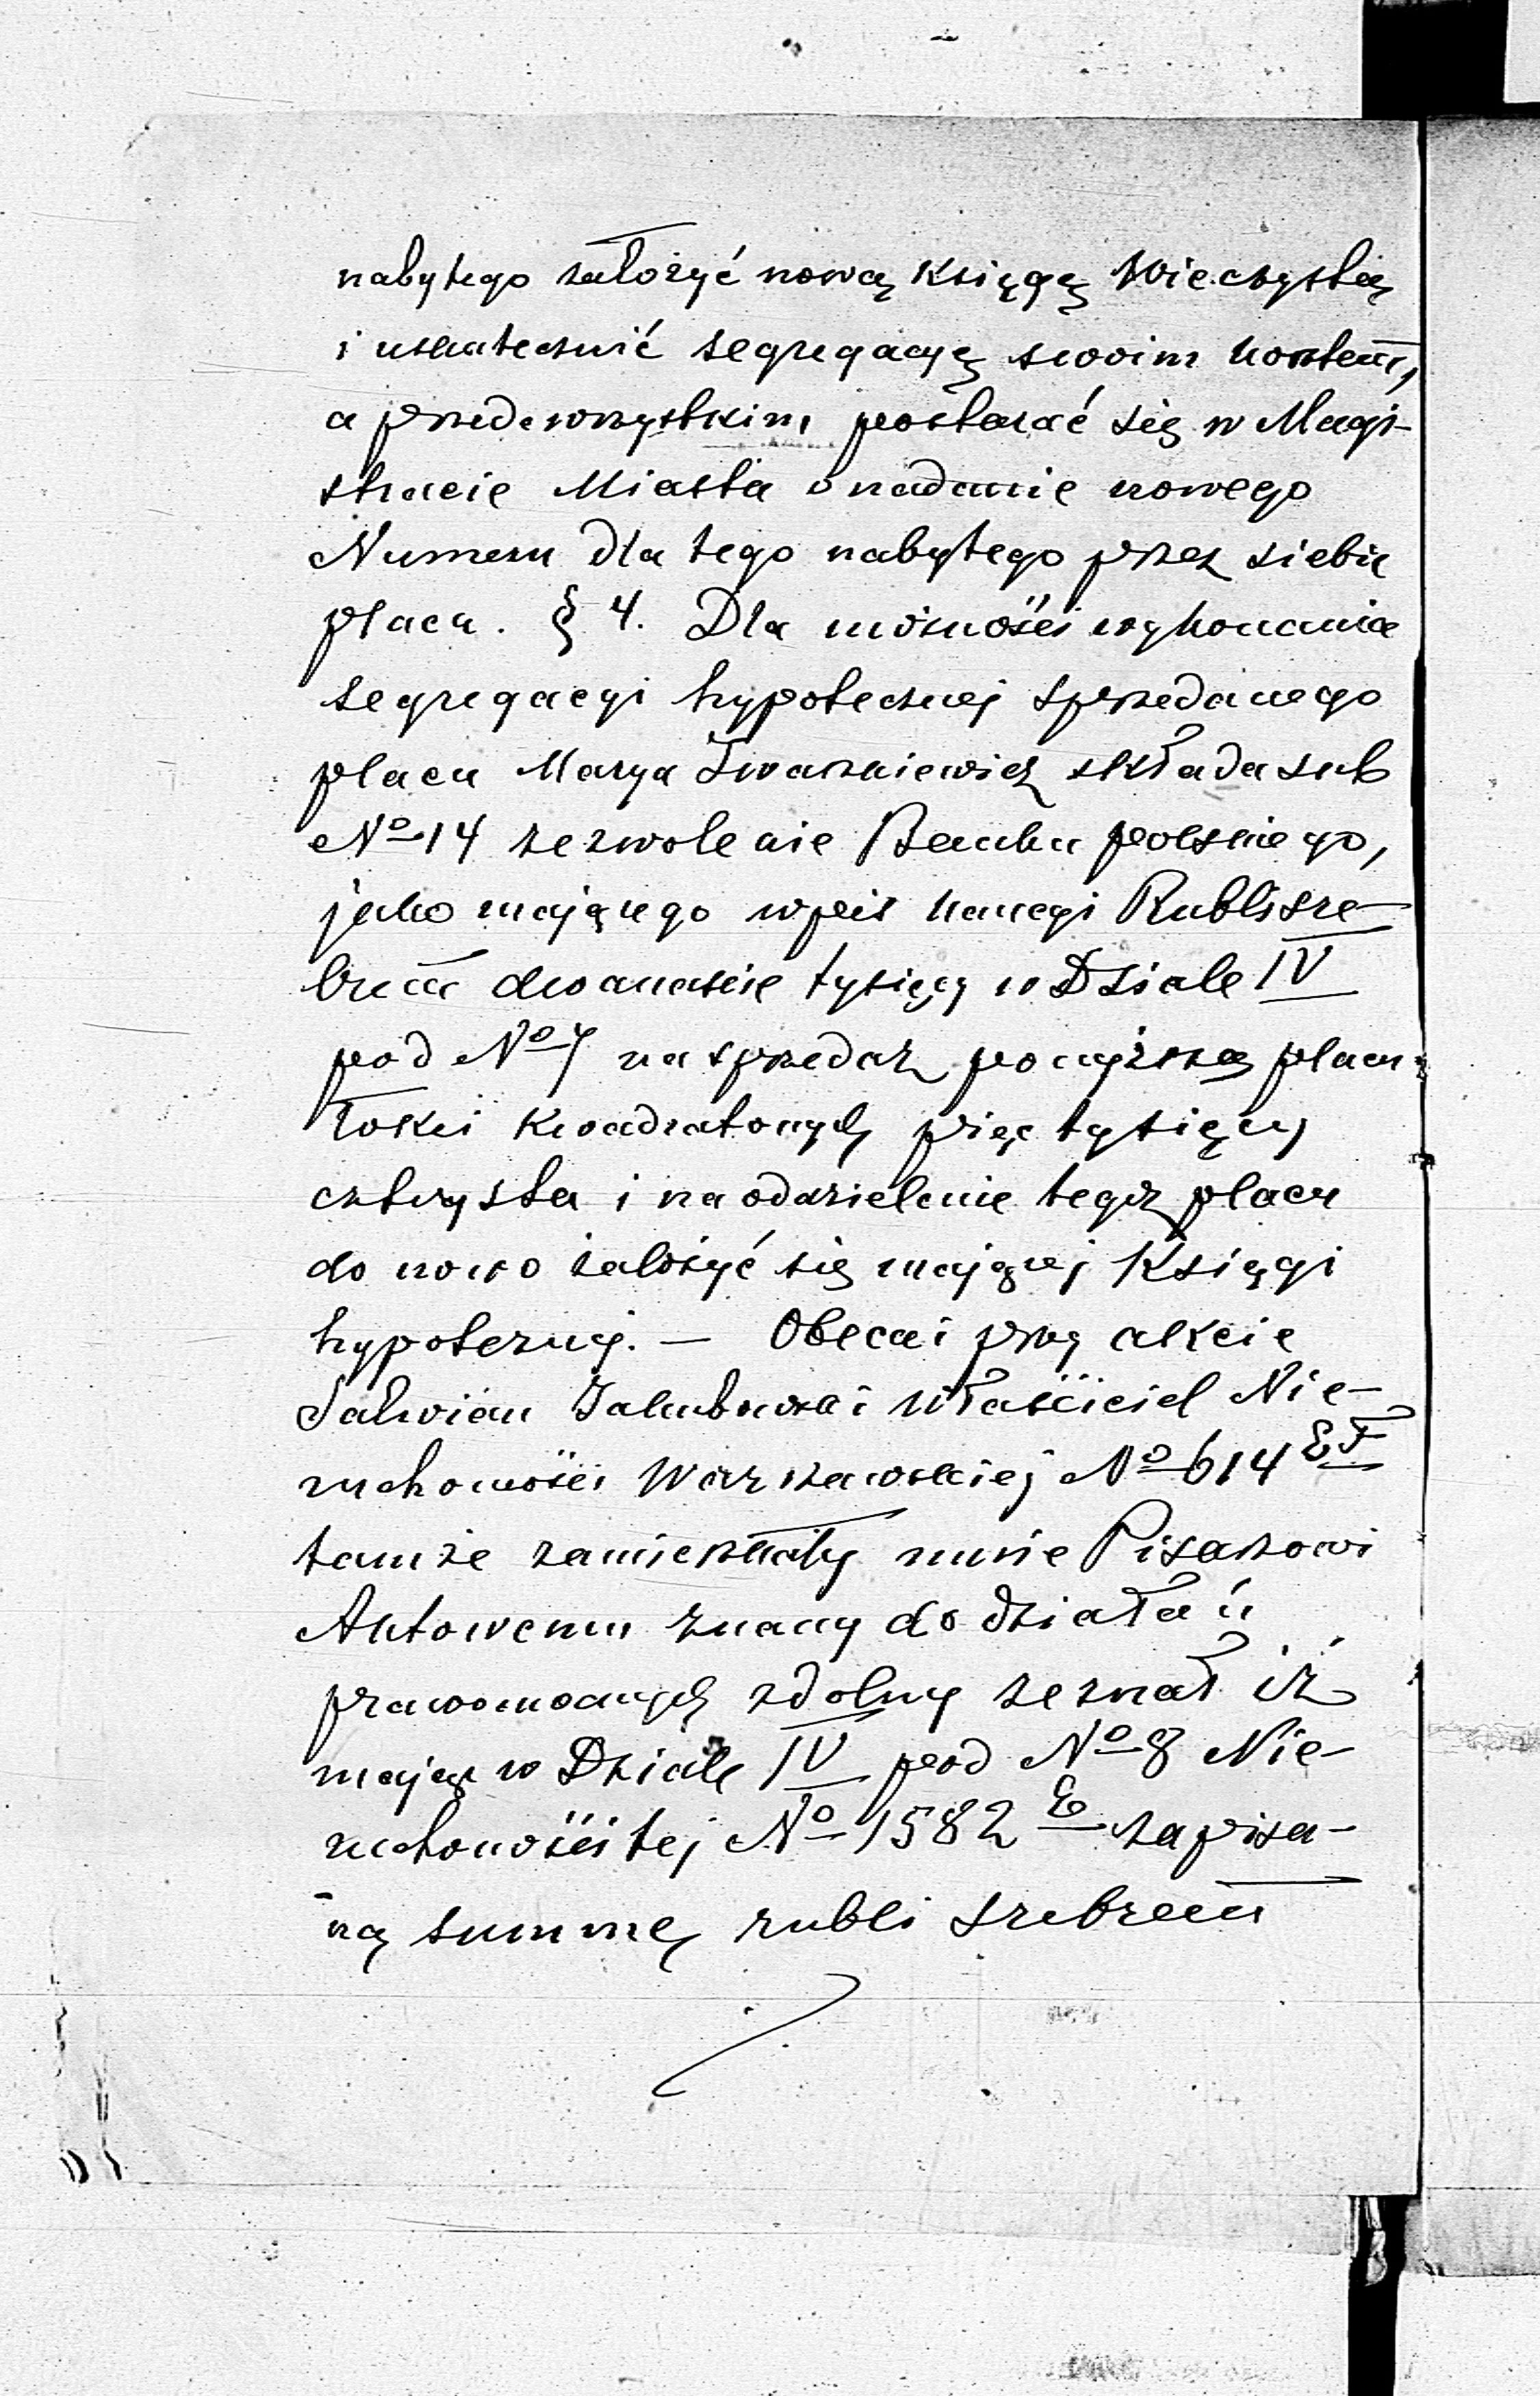 nabytego założyć nową Księgę Wieczystą
i uskutecznić segregacyę swoim kosztem,
a przedewszystkim postarać się w Magi-
stracie Miasta o nadanie nowego
Numeru dla tego nabytego przez siebie
placu. § 4. Dla możności wykonania
segregacyi hypotecznej sprzedanego
placu Marya Iwaszkiewicz składa sub
No 14 zezwolenie Banku polskiego,
jako mającego wpis kaucyi Rubli sre-
brem dwanaście tysięcy w Dziale IV
pod No 7 na sprzedaż powyższą placu
łokci kwadratowych pięć tysięcy
czterysta i na oddzielenie tegoż placu
do nowo założyć się mającej Księgi
hypotecznej. — Obecni przy akcie
Salwian Jakubowski właściciel Nie-
ruchomości Warszawskiej No 614 EF
tamże zamieszkały mnie Pisarzowi
Aktowemu znany do działań
prawomocnych zdolny zeznał iż
mając w Dziale IV pod No 8 Nie-
ruchomości tej No 1582 E zapisa-
ną summę rubli srebrem